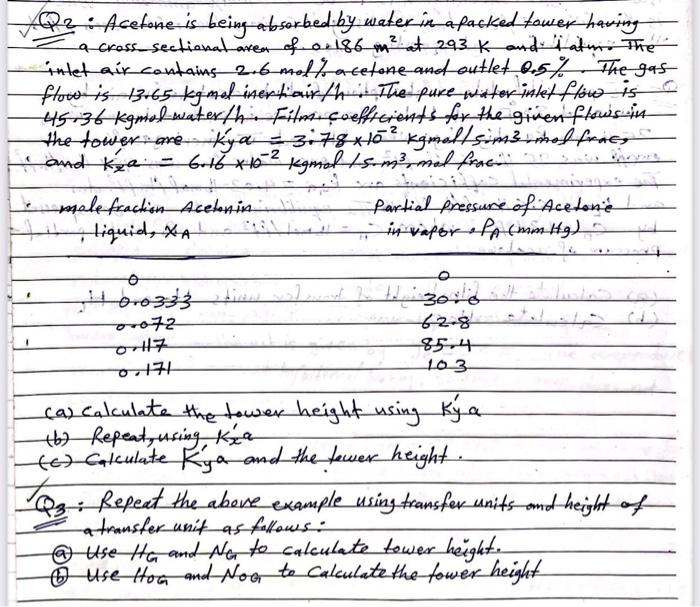 Q2 : Acetone is being absorbed by water in a packed tower having
a cross-sectional area of 0.186 m² at 293 K and 1 atm. The
inlet air contains 2.6 mol% acetone and outlet 0.5%. The gas
flow is 13.65 kg mol inert air/h. The pure water inlet flow is
45.36 kgmol water/h. Film coefficients for the given flows in
the tower are k'ya = 3.78 x 10⁻² kgmol/s.m3.mol frac,
and k'xa = 6.16 x 10⁻² kgmol/s.m³.mol frac.
mole fraction Acetonin
liquid, XA
Partial pressure of Acetone
in vapor, PA (mm Hg)
0 0
0.0333 30.0
0.072 62.8
0.117 85.4
0.171 103
(a) Calculate the tower height using k'ya
(b) Repeat, using k'xa
(c) Calculate K'ya and the tower height.
Q3 : Repeat the above example using transfer units and height of
a transfer unit as follows :
(a) Use HG and NG to calculate tower height.
(b) Use HOG and NOG to Calculate the tower height